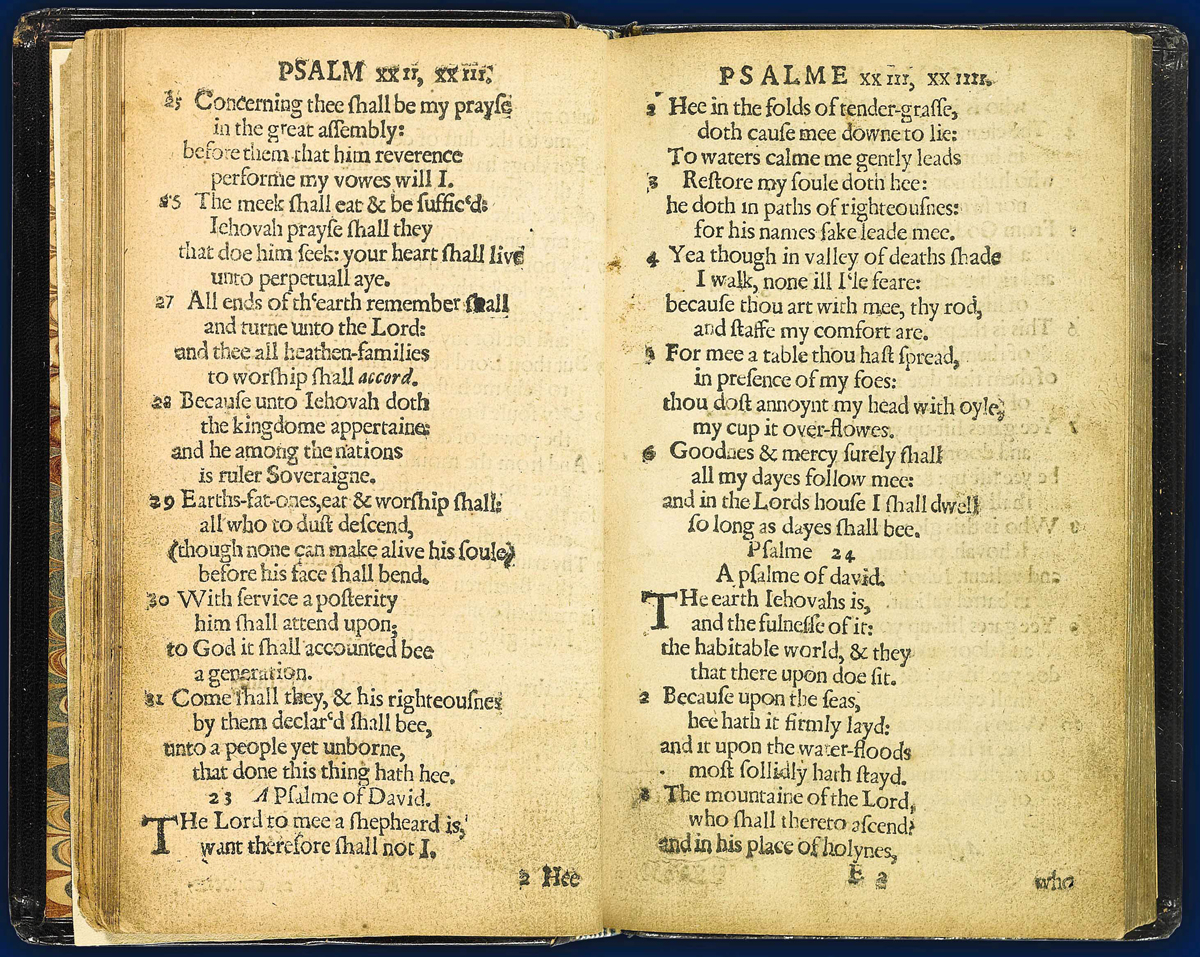 PSALM XXII, XXIII.
25 Concerning thee ſhall be my prayſe
in the great aſſembly:
before them that him reverence
performe my vowes will I.
The meek ſhall eat & be ſuffic'd:
Iehovah prayſe ſhall they
that doe him ſeek: your heart ſhall live
unto perpetuall aye.
27 All ends of th'earth remember ſhall
and turne unto the Lord:
and thee all heathen-families
to worſhip ſhall accord.
28 Becauſe unto Iehovah doth
the kingdome appertaine:
and he among the nations
is ruler Soveraigne.
29 Earths-fat-ones,eat & worſhip ſhall:
all who to duſt deſcend,
(though none can make alive his ſoule)
before his face ſhall bend.
30 With ſervice a poſterity
him ſhall attend upon;
to God it ſhall accounted bee
a generation.
31 Come ſhall they, & his righteouſnes
by them declar'd ſhall bee,
unto a people yet unborne,
that done this thing hath hee.
23 A Pſalme of David.
THe Lord to mee a ſhepheard is,
want therefore ſhall not I.
2 Hee
PSALME XXIII, XXIIII.
2 Hee in the folds of tender-graſſe,
doth cauſe mee downe to lie:
To waters calme me gently leads
3 Reſtore my ſoule doth hee:
he doth in paths of righteouſnes:
for his names ſake leade mee.
4 Yea though in valley of deaths ſhade
I walk, none ill I'le feare:
becauſe thou art with mee, thy rod,
and ſtaffe my comfort are.
5 For mee a table thou haſt ſpread,
in preſence of my foes:
thou doſt annoynt my head with oyle,
my cup it over-flowes.
6 Goodnes & mercy ſurely ſhall
all my dayes follow mee:
and in the Lords houſe I ſhall dwell
ſo long as dayes ſhall bee.
Pſalme 24
A pſalme of david.
THe earth Iehovahs is,
and the fulneſſe of it:
the habitable world, & they
that there upon doe ſit.
2 Becauſe upon the ſeas,
hee hath it firmly layd:
and it upon the water-floods
moſt ſollidly hath ſtayd.
3 The mountaine of the Lord,
who ſhall thereto aſcend?
and in his place of holynes,
E 2
who